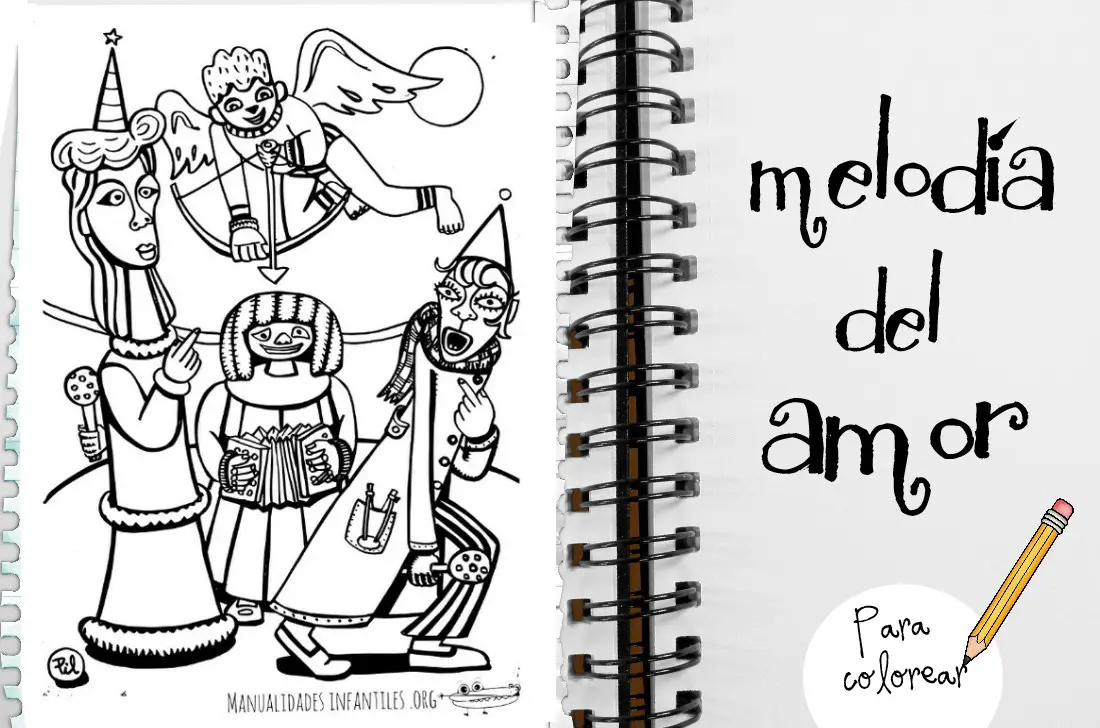 Pil
MANUALIDADES INFANTILES .ORG
melodía
del
amor
Para
colorear